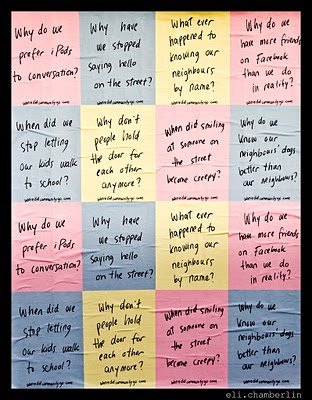 Why do we
prefer iPods
to conversation?
wheredidcommunitygo.com
Why have
we stopped
saying hello
on the street?
wheredidcommunitygo.com
What ever
happened to
knowing our
neighbours
by name?
wheredidcommunitygo.com
Why do we
have more friends
on Facebook
than we do
in reality?
wheredidcommunitygo.com
When did we
stop letting
our kids walk
to school?
wheredidcommunitygo.com
Why don't
people hold
the door for
each other
anymore?
wheredidcommunitygo.com
When did smiling
at someone on
the street
become creepy?
wheredidcommunitygo.com
Why do we
know our
neighbours' dogs
better than
our neighbours?
wheredidcommunitygo.com
Why do we
prefer iPods
to conversation?
wheredidcommunitygo.com
Why have
we stopped
saying hello
on the street?
wheredidcommunitygo.com
What ever
happened to
knowing our
neighbours
by name?
wheredidcommunitygo.com
Why do we
have more friends
on Facebook
than we do
in reality?
wheredidcommunitygo.com
When did we
stop letting
our kids walk
to school?
wheredidcommunitygo.com
Why don't
people hold
the door for
each other
anymore?
wheredidcommunitygo.com
When did smiling
at someone on
the street
become creepy?
wheredidcommunitygo.com
Why do we
know our
neighbours' dogs
better than
our neighbours?
wheredidcommunitygo.com
eli.chamberlin